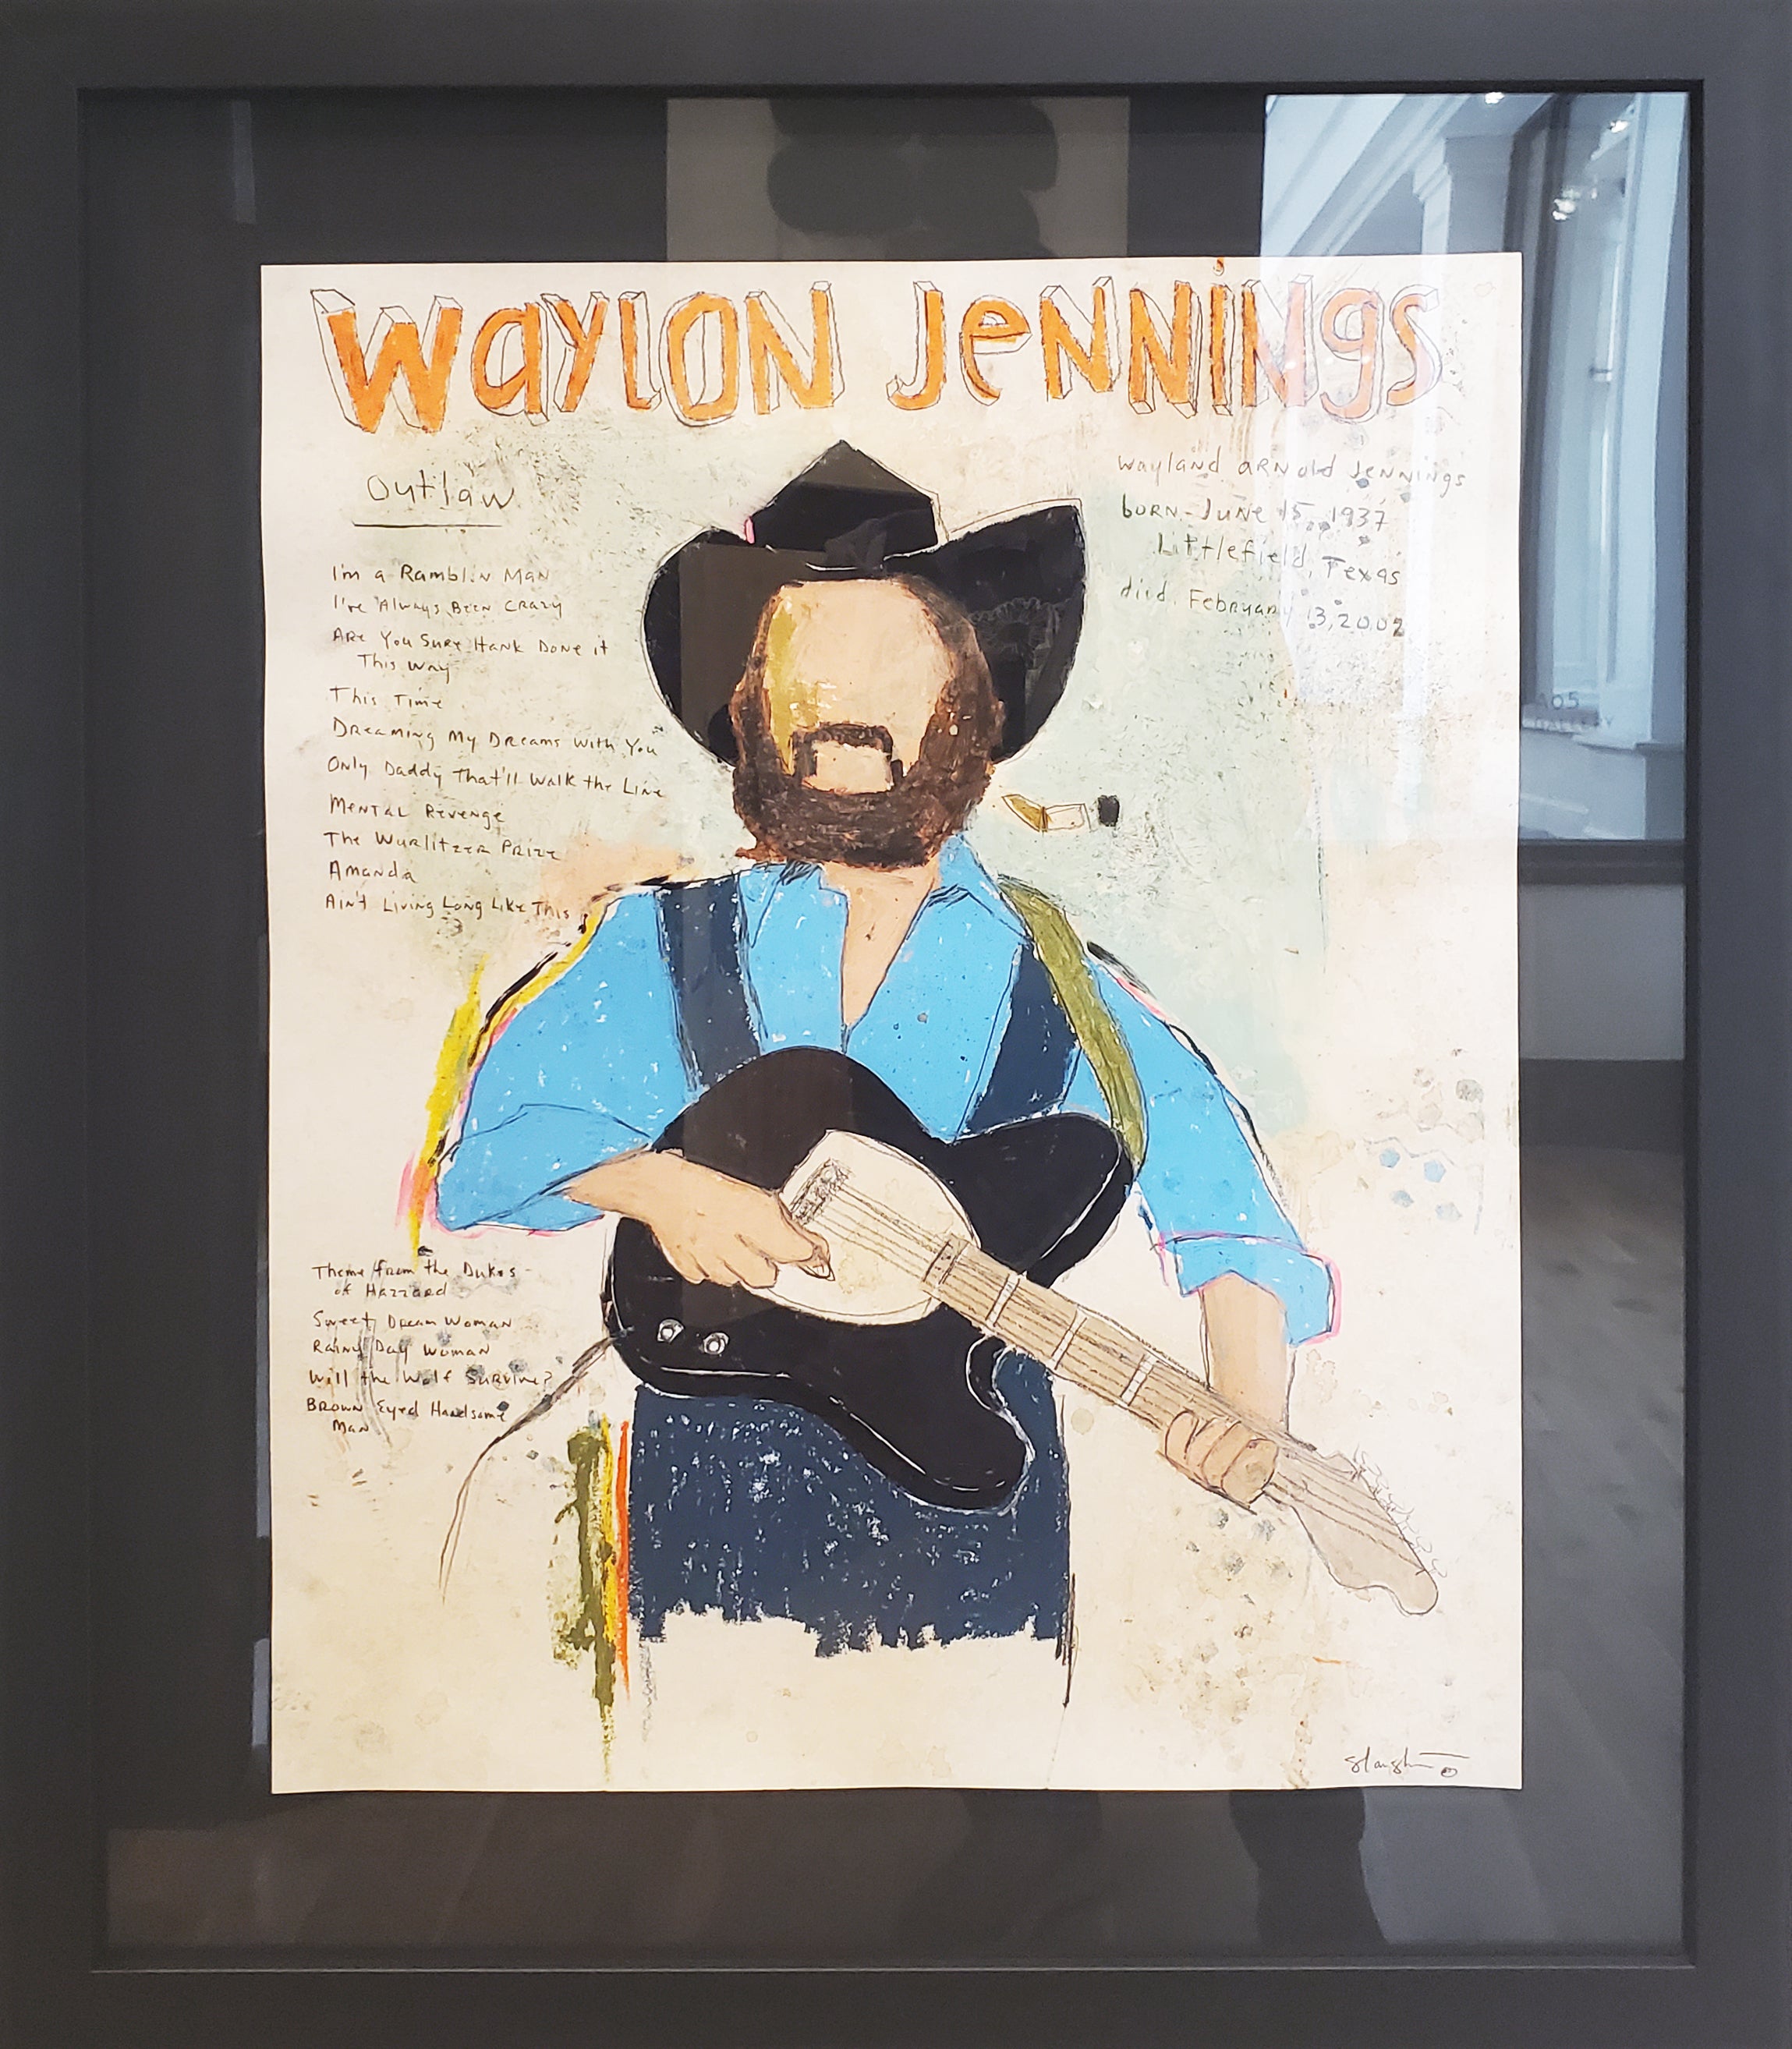 Waylon Jennings
Outlaw
Wayland Arnold Jennings
born - June 15, 1937
Littlefield, Texas
died. February 13, 2002
I'm a Ramblin Man
I've Always Been Crazy
Are You Sure Hank Done it
This Way
This Time
Dreaming My Dreams With You
Only Daddy That'll Walk the Line
Mental Revenge
The Wurlitzer Prize
Amanda
Ain't Living Long Like This
Theme from the Dukes
of Hazzard
Sweet Dream Woman
Rainy Day Woman
Will the Wolf Survive?
Brown Eyed Handsome
Man